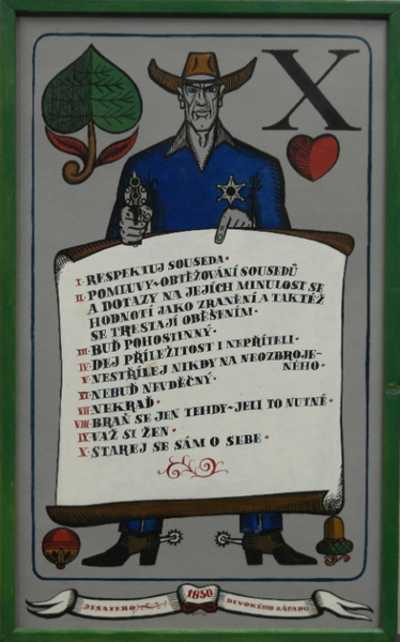 X
I. RESPEKTUJ SOUSEDA.
II. POMLUVY - OBTĚŽOVÁNÍ SOUSEDŮ
A DOTAZY NA JEJICH MINULOST SE
HODNOTÍ JAKO ZRANĚNÍ A TAKTÉŽ
SE TRESTAJÍ OBĚŠENÍM.
III. BUĎ POHOSTINNÝ.
IV. DEJ PŘÍLEŽITOST I NEPŘÍTELI.
V. NESTŘÍLEJ NIKDY NA NEOZBROJE-
NÉHO.
VI. NEBUĎ NEVDĚČNÝ.
VII. NEKRAĎ.
VIII. BRAŇ SE JEN TEHDY - JE LI TO NUTNÉ.
IX. VAŽ SI ŽEN.
X. STAREJ SE SÁM O SEBE.
DESATERO 1850 DIVOKÉHO ZÁPADU